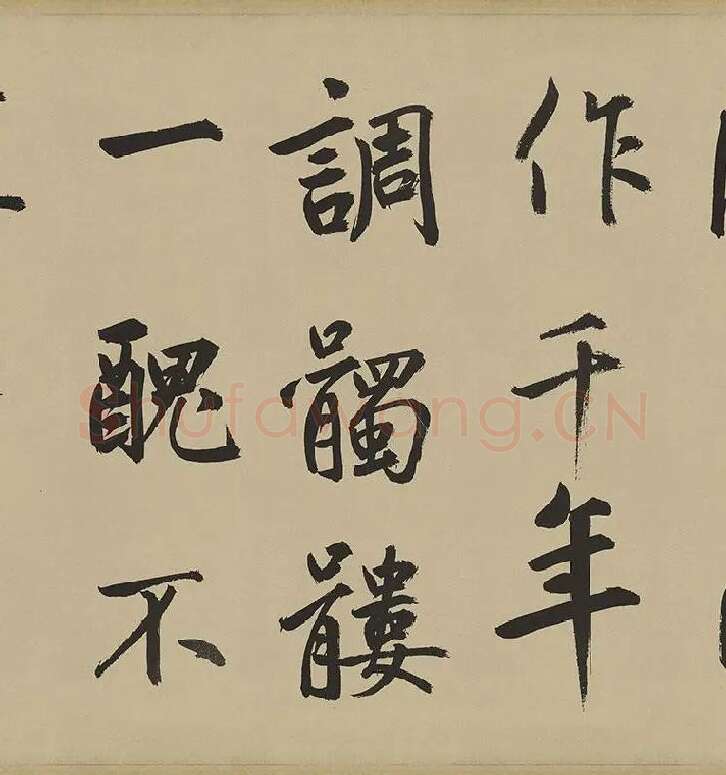 作千年
調髑髏
一醜不
Shufawang.CN